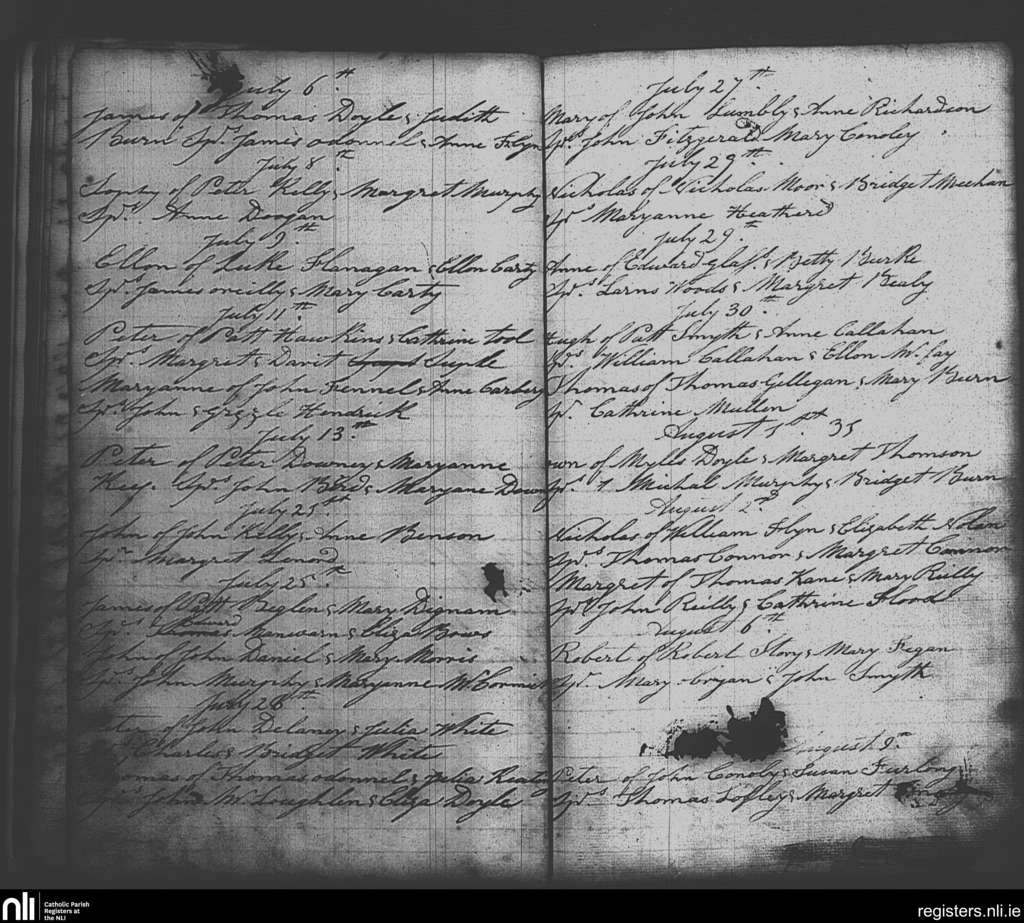 July 6th
James of Thomas Doyle & Judith
Burn Sprs James odonnel & Anne Flyn
July 8th
Sophy of Peter Kelly & Margret Murphy
Sprs Anne Doogan
July 9th
Ellon of Luke Flanagan & Ellon Carty
Sprs James oreilly & Mary Carty
July 11th
Peter of Patt Hawkins & Cathrine tool
Sprs Margret & Davit Suple
Maryanne of John Fennel & Anne Carbery
Sprs John & Grizzle Hendrick
July 13th
Peter of Peter Downey & Maryanne
Key. Sprs John Bird & Maryane Downy
July 25th
John of John Kelly & Anne Benson
Spr Margret Lenord
July 25th
James of Patt Beglen & Mary Dignam
Edward
Sprs Thomas Manwarn & Eliza Bows
John of John Daniel & Mary Morris
Sprs John Murphy & Maryanne McCormick
July 26th
Peter of John Delaney & Julia White
Sprs Charles & Bridget White
Thomas of Thomas odonnel & Julia Keating
Sprs John McLoughlen & Eliza Doyle
July 27th
Mary of John Lumbly & Anne Richardson
Sprs John Fitzgerald Mary Conoley
July 29th
Nicholas of Nicholas Moor & Bridget Meehan
Sprs Maryanne Heatherd
July 29th
Anne of Edward & Betty Burke
Sprs Larns Woods & Margret Bealy
July 30th
Hugh of Patt Smyth & Anne Callahan
Sprs William Callahan & Ellon McCay
Thomas of Thomas Gellegan & Mary Burn
Spr Cathrine Mullen
August 1st 35
of Myles Doyle & Margret Thomson
Sprs Michal Murphy & Bridget Burn
August 2nd
Nicholas of William Flyn & Elizabeth Nolan
Sprs Thomas Connor & Margret Connor
Margret of Thomas Kane & Mary Reilly
Sprs John Reilly & Cathrine Flood
August 6th
Robert of Robert Story & Mary Fegan
Spr Mary bryan & John Smyth
August 9th
Peter of John Conoby & Susan Furlong
Sprs Thomas Lofley & Margret
nli Catholic Parish
Registers at
the NLI
registers.nli.ie